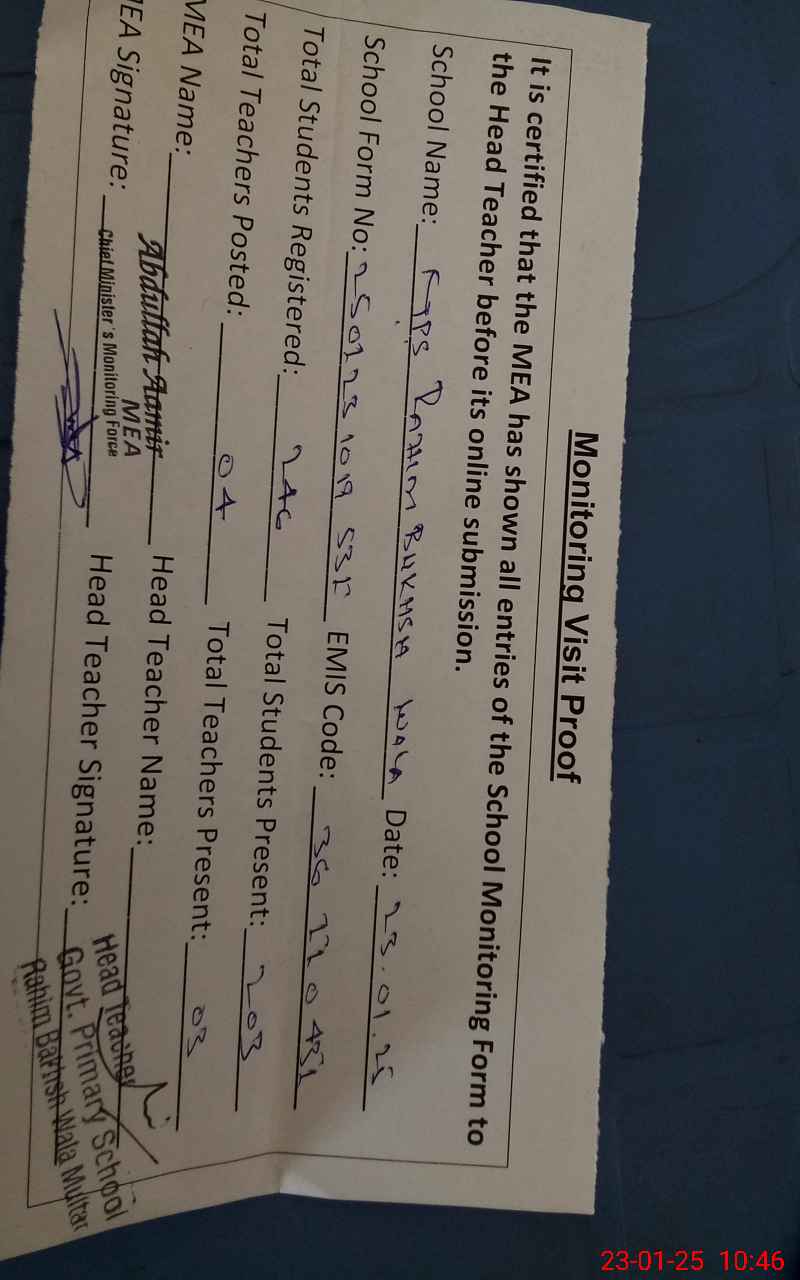 Monitoring Visit Proof
It is certified that the MEA has shown all entries of the School Monitoring Form to
the Head Teacher before its online submission.
School Name: GPS RAHIM BUKHSH WALA Date: 23.01.25
School Form No: 250123 1019 Total Students Registered: 246 Total Students Present: 203
EMIS Code:
Total Teachers Posted: 04 Total Teachers Present: 03
MEA Name: Abdullah Aamir Head Teacher Name:
MEA
Chief Minister's Monitoring Force
EA Signature: Head Teacher Signature:
Head Teacher
Govt. Primary School
Rahim Bakhsh Wala Multan
23-01-25 10:46